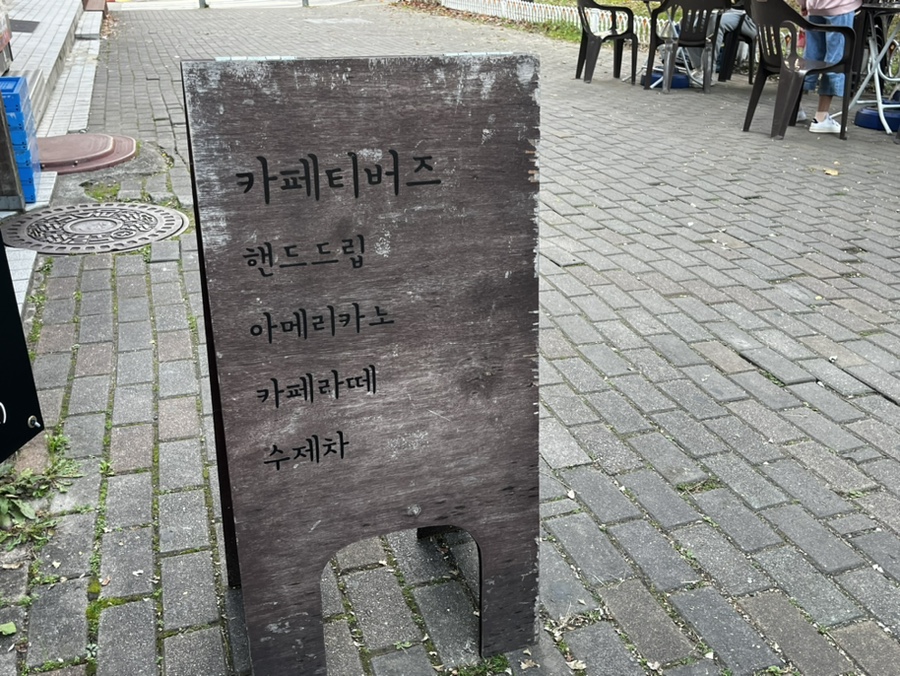 카페티버즈
핸드드립
아메리카노
카페라떼
수제차